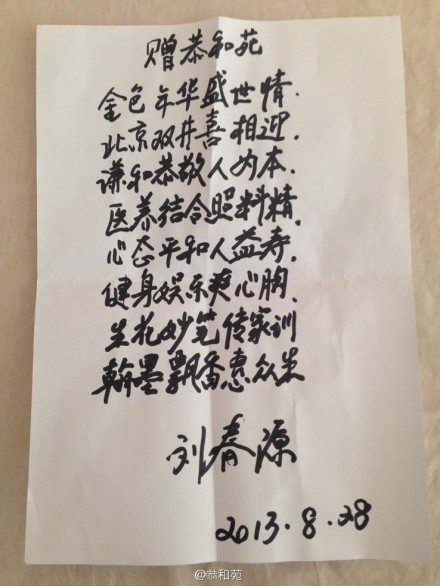 赠恭和苑
金色年华盛世情.
北京双井喜相迎.
谦和恭敬人为本.
医养结合照料精.
心态平和人益寿.
健身娱乐爽心胸.
生花妙笔传家训
翰墨飘香惠众生
刘春源
2013.8.28
@恭和苑